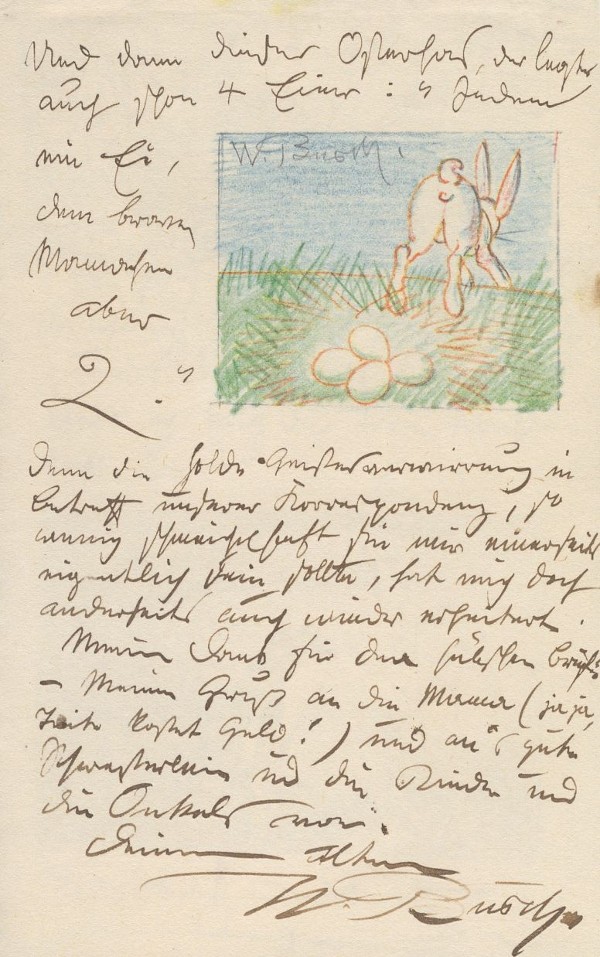 Und dann dieser Osterhas, der legte
auch schon 4 Eier: "Jedem
ein Ei,
dem braven
Mamachen
aber
2."
W. Busch.
Denn die holde Geistesverwirrung in
betreff unserer Korrespondenz, so
wenig schmeichelhaft sie mir einerseits
eigentlich sein sollte, hat mich doch
anderseits auch wieder erheitert.
Meinen Dank für den hübschen
– Meinen Gruß an die Mama (ja ja,
kostet Geld!) und an's gute
Schwesterlein und die Kinder und
die Onkels von
Deinem alten
W. Busch.